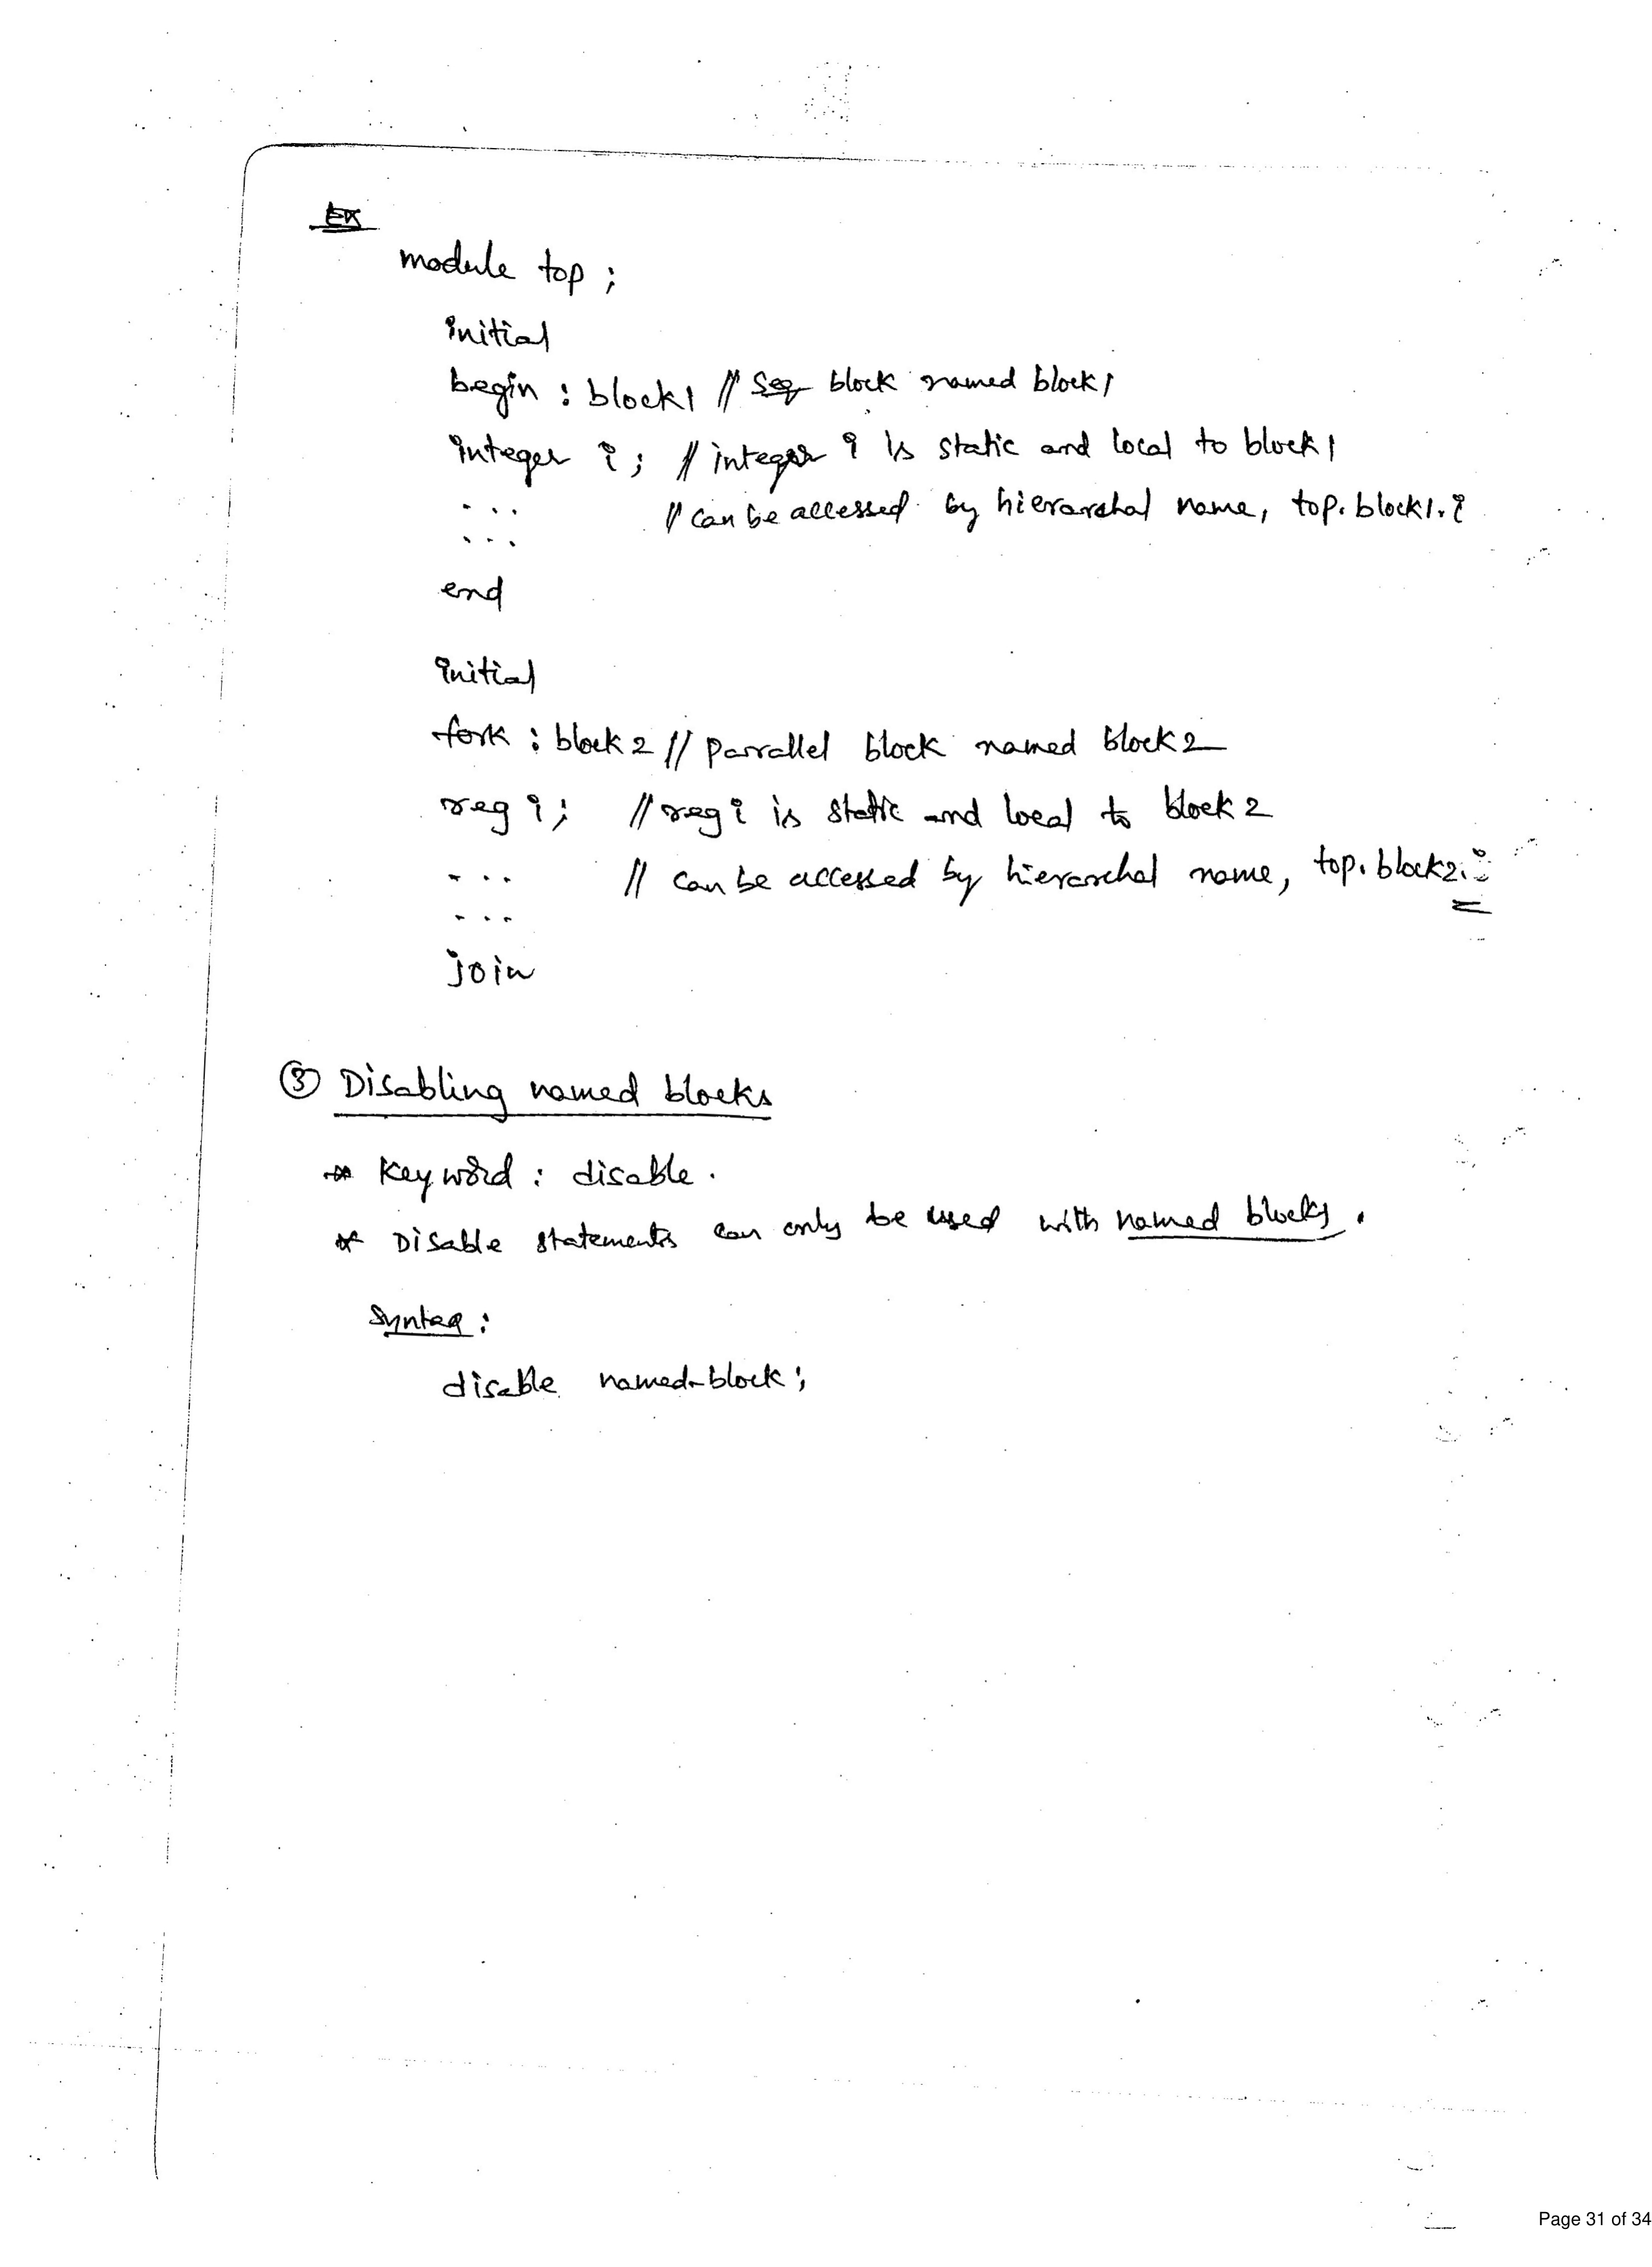 Ex
module top ;
initial
begin : block1 // seq block named block1
integer i ; // integer i is static and local to block1
... // can be accessed by hierarchal name, top.block1.i
...
end
initial
fork : block2 // parrallel block named block2
reg i ; // reg i is static and local to block2
... // can be accessed by hierarchal name, top.block2.i
...
join
③ Disabling named blocks
* Keyword : disable.
* Disable statements can only be used with named blocks.
Syntax :
disable named-block ;
Page 31 of 34